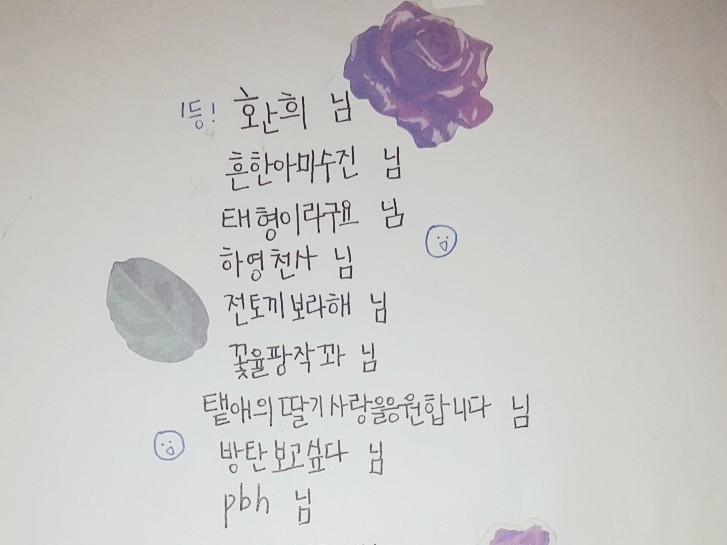 1등! 환희 님
흔한아미수진 님
태형이라구요 님
하영천사 님
전토끼보라해 님
꽃율팡작꽈 님
탵애의딸기사랑을응원합니다 님
방탄보고싶다 님
pbh 님